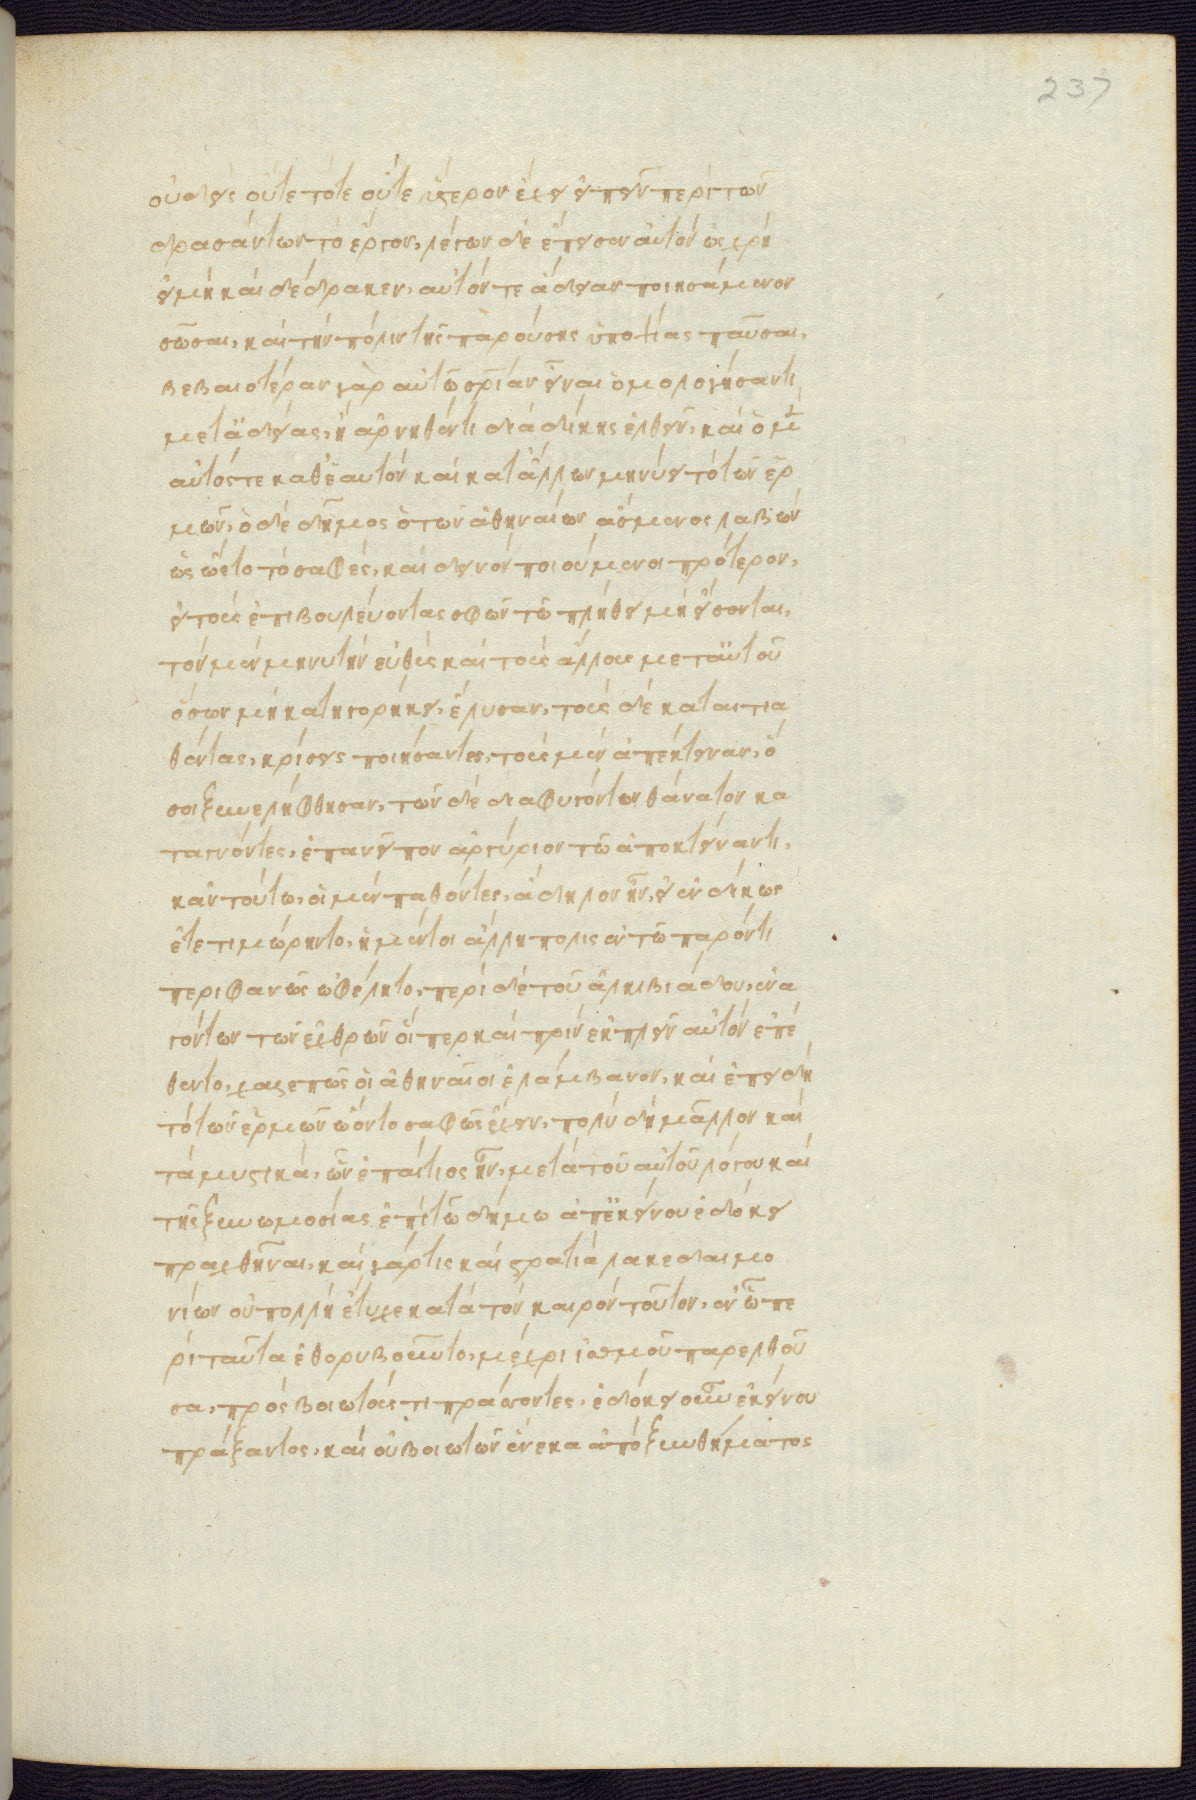 237
οὐδεὶς οὔτε τότε οὔτε ὕστερον ἔχει εἰπεῖν περὶ τῶν
δρασάντων τὸ ἔργον, λέγων δὲ ἔπεισεν αὐτὸν ὡς χρὴ
εἰ μὴ καὶ δέδρακεν, αὐτόν τε ἄδειαν ποιησάμενον
σῶσαι, καὶ τὴν πόλιν τῆς παρούσης ὑποψίας παῦσαι,
βεβαιοτέραν γὰρ αὐτῶ σρίαν εἶναι ὁμολογήσαντι
μετ᾽ ἀδείας, ἢ ἀρνηθέντι διὰ δίκης ἐλθεῖν, καὶ ὁ μὲν
αὐτός τε καθ᾽ ἑαυτὸν καὶ κατ᾽ ἄλλων μηνύει τὸ τῶν ἑρ
μῶν, ὁ δὲ δῆμος ὁ τῶν ἀθηναίων ἄσμενος λαβὼν
ὡς ὤετο τὸ σαφές, καὶ δεινὸν ποιούμενοι πρότερον,
εἰ τοὺς ἐπιβουλεύοντας σφῶν τῶ πλήθει μὴ εἴσονται,
τὸν μὲν μηνυτὴν εὐθὺς καὶ τοὺς ἄλλους μετ᾽ αὐτοῦ
ὅσων μὴ κατηγορήκει, ἔλυσαν, τοὺς δὲ καταιτια
θέντας, κρίσεις ποιήσαντες, τοὺς μὲν ἀπέκτειναν, ὅ
σοι ξυνελήφθησαν, τῶν δὲ διαφυγόντων θάνατον κα
ταγνόντες, ἐπανεῖπον ἀργύριον τῶ ἀποκτείναντι,
κἀν τούτω, οἱ μὲν παθόντες, ἄδηλον ἦν, εἰ ἀδίκως
ἐτετιμώρηντο, ἡ μέντοι ἄλλη πόλις ἐν τῶ παρόντι
περιφανῶς ὠφέλητο, περὶ δὲ τοῦ ἀλκιβιάδου, ἐνα
γόντων τῶν ἐχθρῶν οἵπερ καὶ πρὶν ἐκπλεῖν αὐτὸν ἐπέ
θεντο, χαλεπῶς οἱ ἀθηναῖοι ἐλάμβανον, καὶ ἐπειδὴ
τὸ τῶν ἑρμῶν ὤοντο σαφῶς ἔχειν, πολὺ δὴ μᾶλλον καὶ
τὰ μυστικά, ὧν ἐπαίτιος ἦν, μετὰ τοῦ αὐτοῦ λόγου καὶ
τῆς ξυνωμοσίας ἐπὶ τῶ δήμω ἀπ᾽ ἐκείνου ἐδόκει
πραχθῆναι, καὶ γάρ τις καὶ στρατιὰ λακεδαιμο
νίων οὐ πολλὴ ἔτυχε κατὰ τὸν καιρὸν τοῦτον, ἐν ᾧ πε
ρὶ ταῦτα ἐθορυβοῦντο, μέχρι ἰσθμοῦ παρελθοῦ
σα, πρὸς βοιωτούς τι πράσσοντες, ἐδόκει οὖν ἐκείνου
πράξαντος, καὶ οὐ βοιωτῶν ἕνεκα ἀπὸ ξυνθήματος